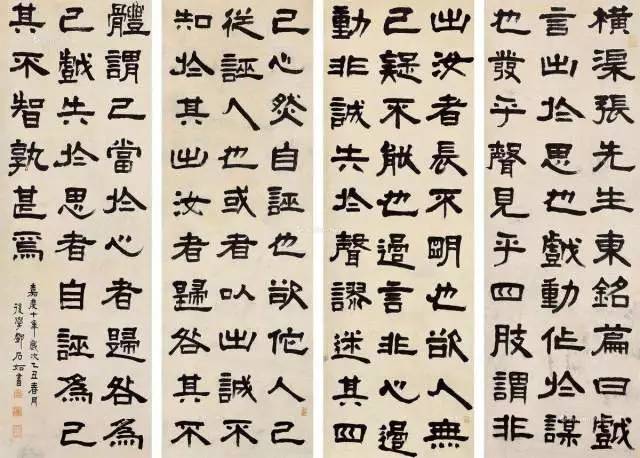 橫渠張先生東銘篇曰戲
言出於思也戲動作於謀
也發乎聲見乎四肢謂非
出汝者長不明也欲人無
己疑不能也過言非心過
動非誠失於聲謬迷其四
己心然自誣也欲佗人己
從誣人也或者以出誠不
知於其出汝者歸咎其不
體謂己當於心者歸咎為
己戲失於思者自誣為己
其不智孰甚焉
嘉慶十年歲次乙丑春月
後學鄧石如書